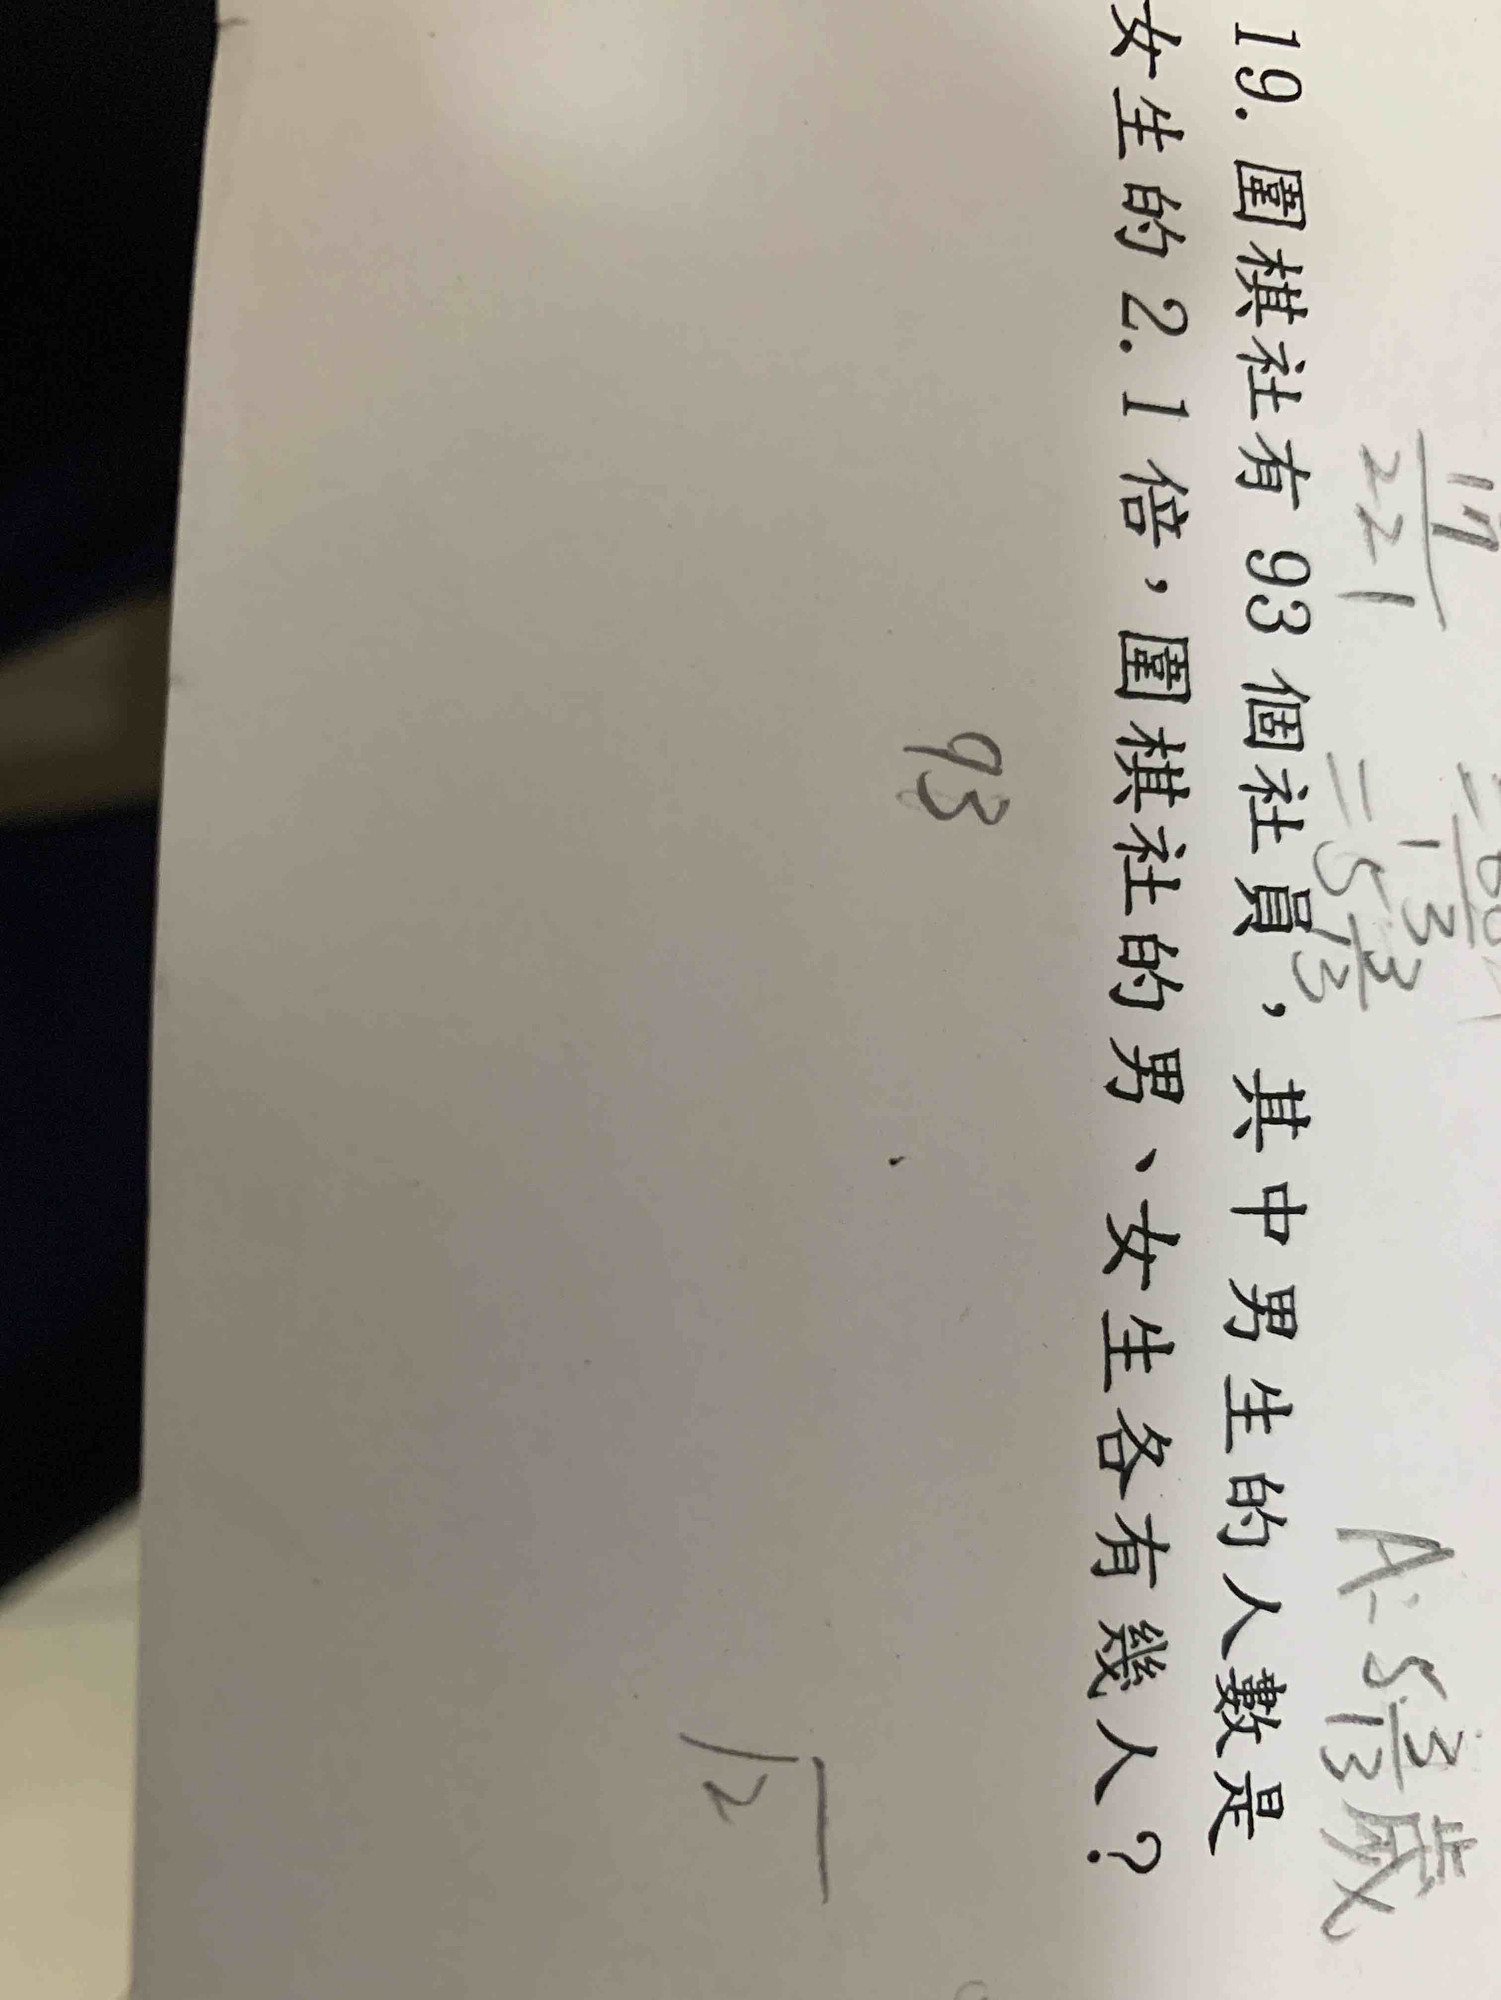 17
221
= 5 3/13
A: 5 3/13 歲
19. 圍棋社有 93 個社員，其中男生的人數是
女生的 2.1 倍，圍棋社的男、女生各有幾人？
93
12